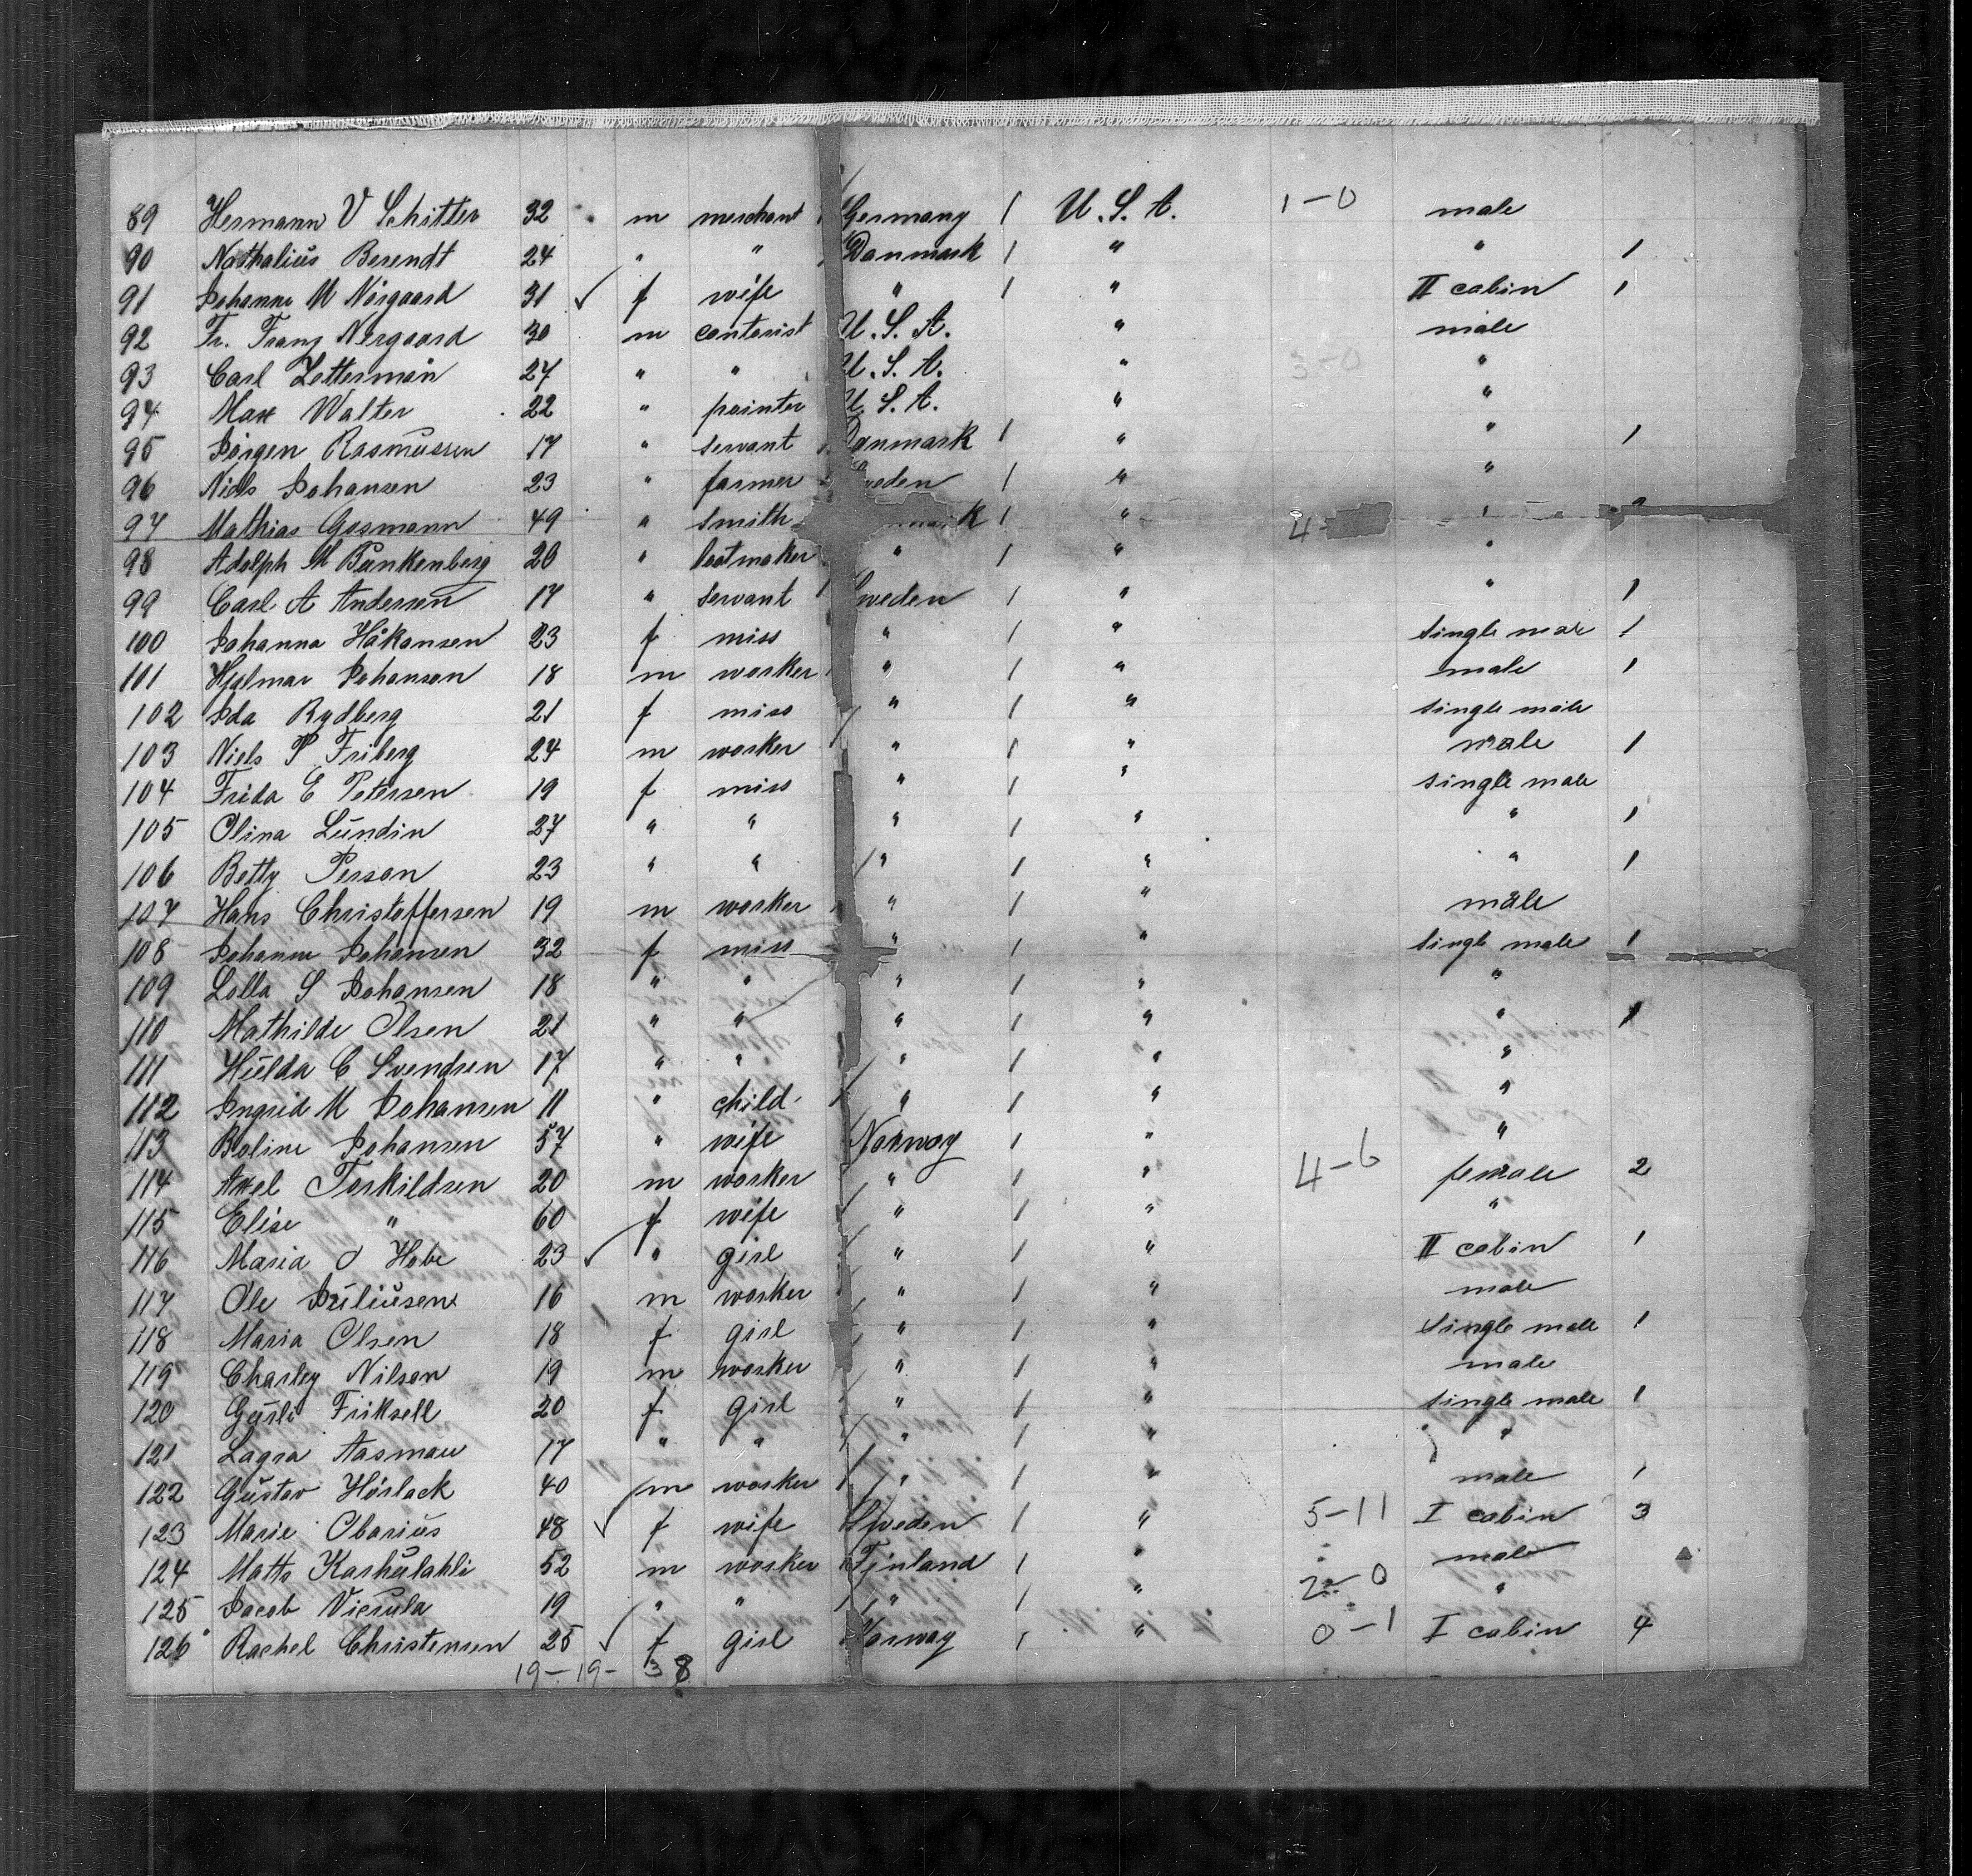 89 Hermann V Schitter 32 m merchant Germany / U.S.A. 1-0 male
90 Nathalius Berendt 24 " " Danmark / " " 1
91 Johanne M Nörgaard 31 ✓ f wife " / " II cabin 1
92 Fr. Franz Nörgaard 30 m contorist U.S.A. " male
93 Carl Zetterman 27 " " U.S.A. " 3-0 "
94 Max Walter 22 " painter U.S.A. " "
95 Jörgen Rasmussen 17 " servant Danmark / " " 1
96 Niels Johansen 23 " farmer eden / " "
97 Mathias Gosmann 49 " smith k / " 4- "
98 Adolph M Bunkenberg 20 " bootmaker " / " "
99 Carl A Andersen 17 " servant Sweden / " " 1
100 Johanna Håkansen 23 f miss " / " single male 1
101 Hjalmar Johanson 18 m worker " / " male 1
102 Ida Rydberg 21 f miss " / " single male
103 Niels P Friberg 24 m worker " / " male 1
104 Frida E Petersen 19 f miss " / " single male
105 Olina Lundin 27 " " " / " " 1
106 Betty Person 23 " " " / " " 1
107 Hans Christoffersen 19 m worker " / " male
108 Johanne Johansen 32 f miss " / " single male 1
109 Lolla S Johansen 18 " " " / " "
110 Mathilde Olsen 21 " " " / " " 1
111 Hulda C Svendsen 17 " " " / " "
112 Ingrid M Johansen 11 " child " / " "
113 Boline Johansen 57 " wife Norway / " "
114 Axel Torkildsen 20 m worker " / " 4-6 female 2
115 Elise " 60 f wife " / " "
116 Maria O Hobe 23 ✓ " girl " / " II cabin 1
117 Ole Juliusen 16 m worker " / " male
118 Maria Olsen 18 f girl " / " single male 1
119 Charley Nilson 19 m worker " / " male
120 Gyrli Friksell 20 f girl " / " single male 1
121 Lagra Aasmau 17 " " " / " "
122 Gustav Hörlack 40 m worker " / " male 1
123 Marie Obarius 48 ✓ f wife Sweden / " 5-11 I cabin 3
124 Matts 52 m worker Finland / " male
125 Jacob Vierula 19 " " " / " 2-0 "
126 Rachel Christensen 25 ✓ f girl Norway / " 0-1 I cabin 4
19-19- 38